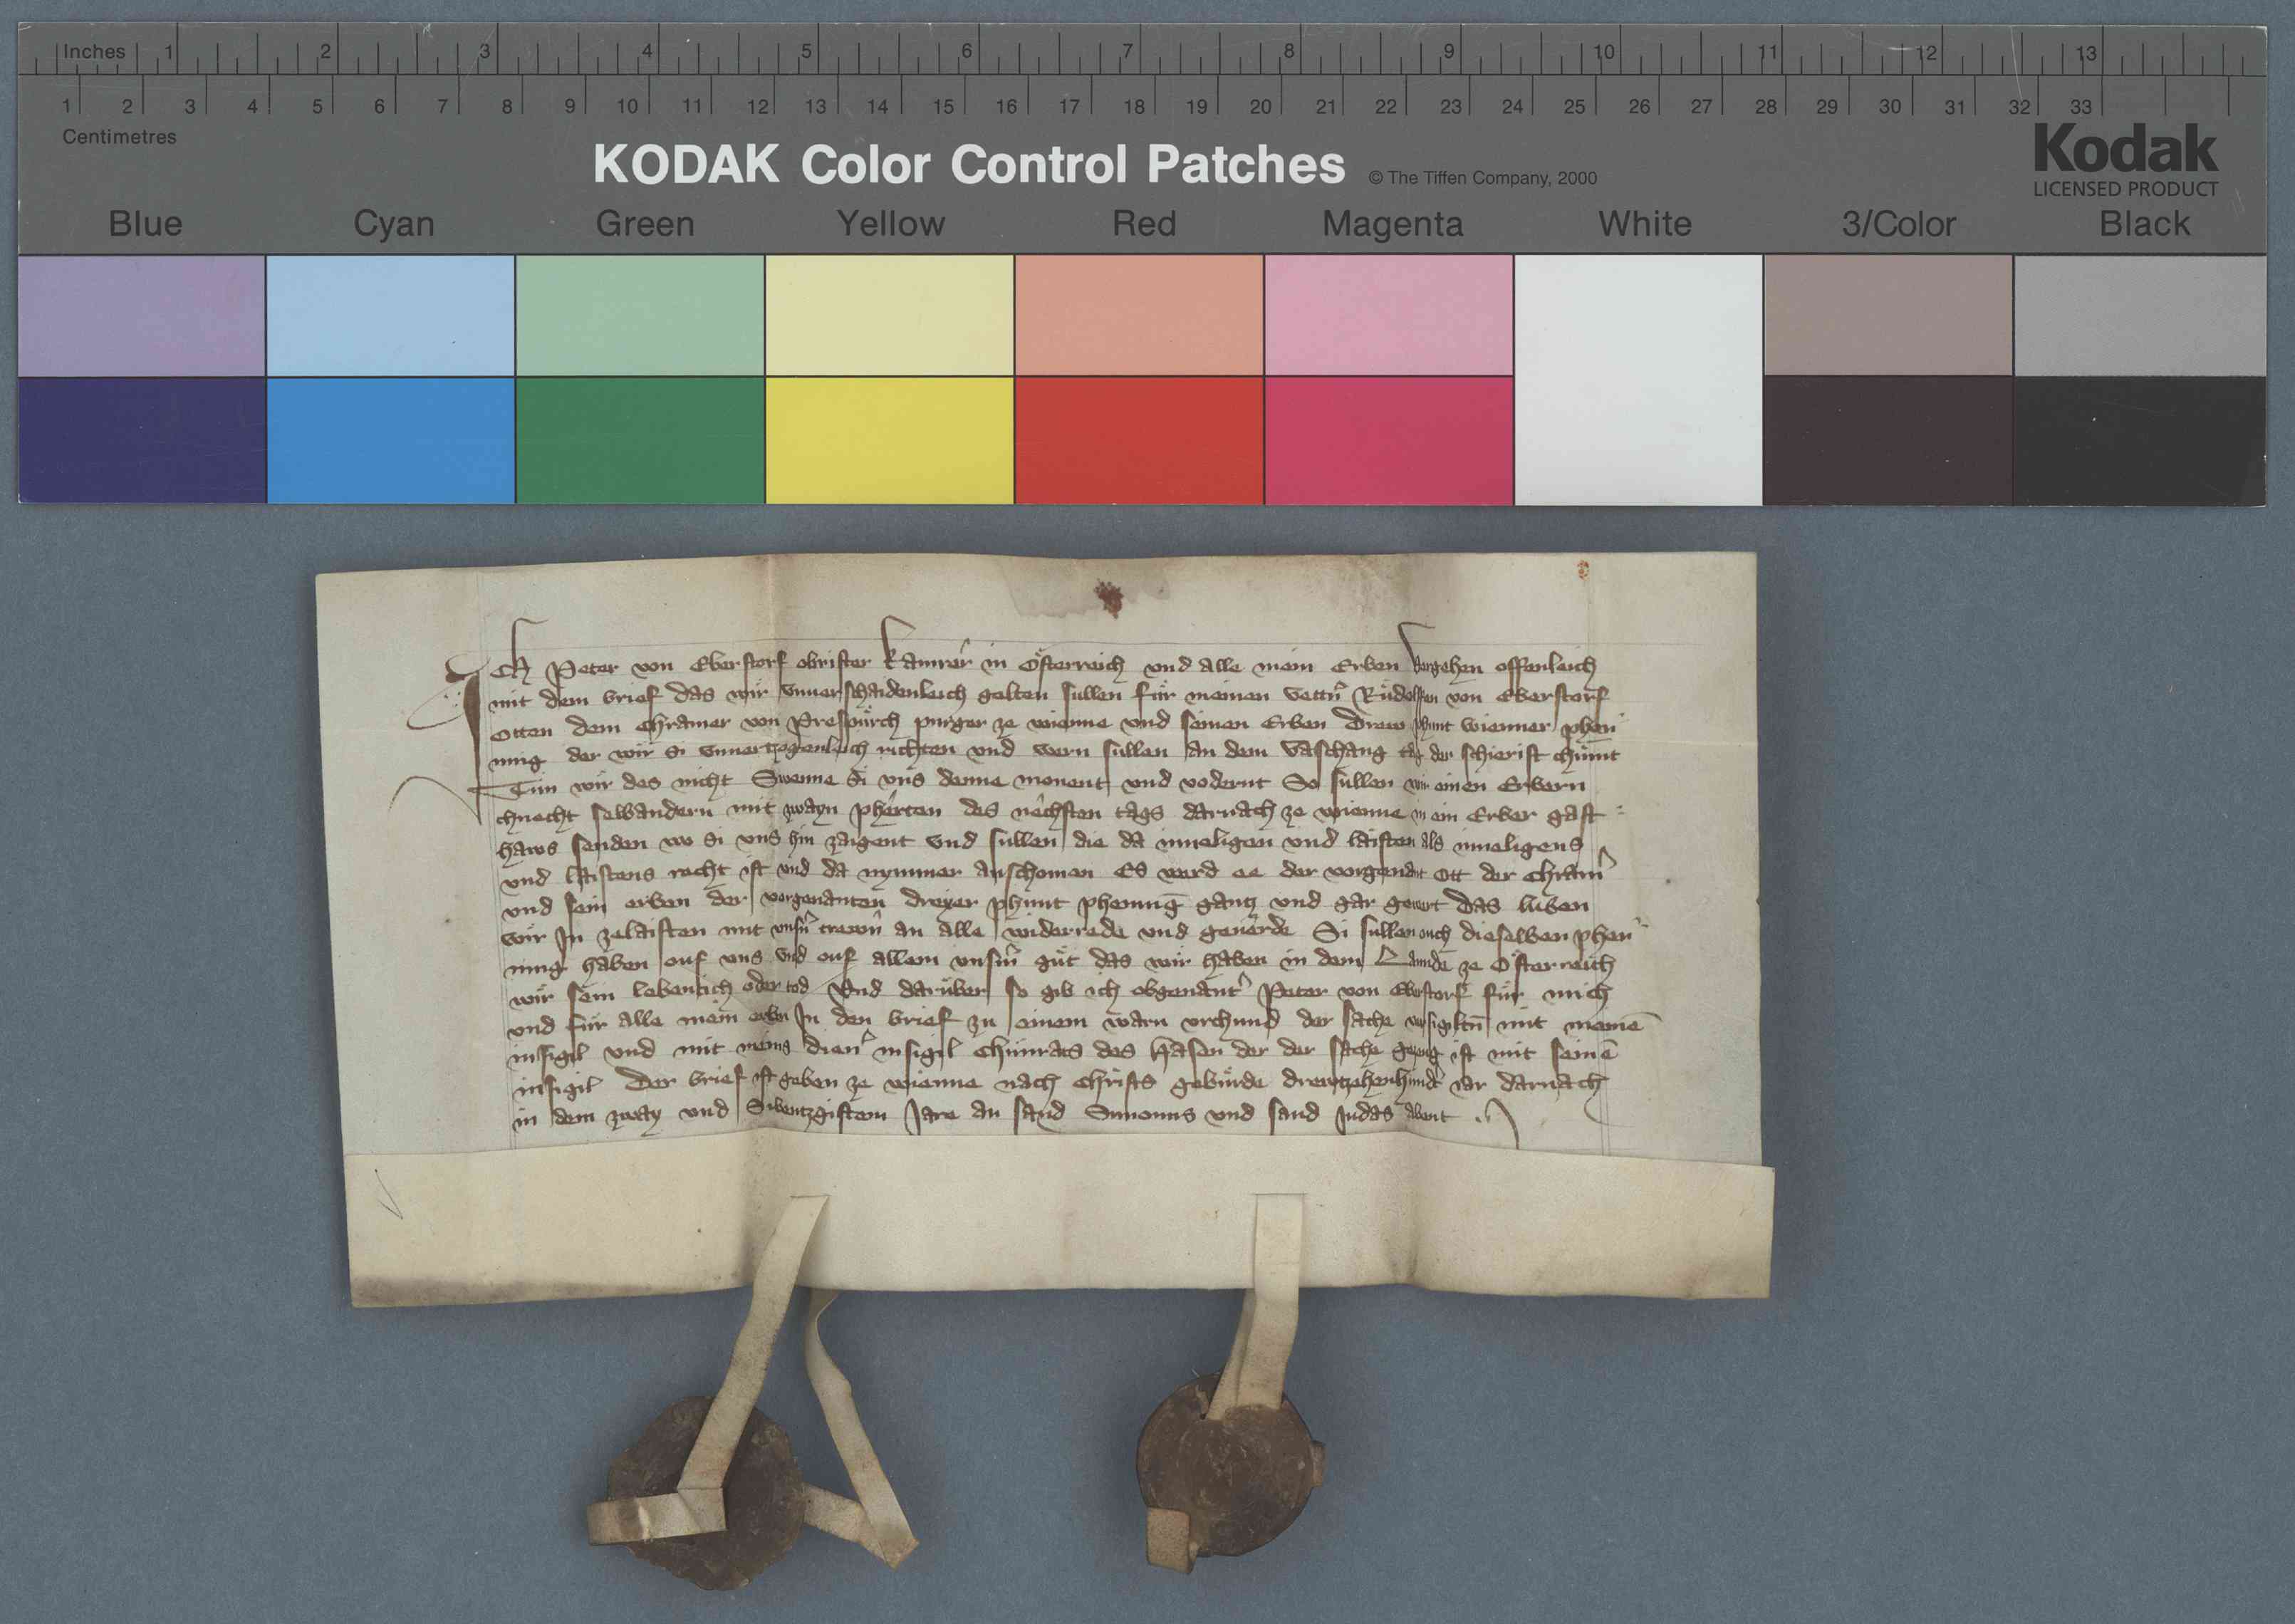 Inches 1 2 3 4 5 6 7 8 9 10 11 12 13
1 2 3 4 5 6 7 8 9 10 11 12 13 14 15 16 17 18 19 20 21 22 23 24 25 26 27 28 29 30 31 32 33
Centimetres
KODAK Color Control Patches © The Tiffen Company, 2000
Kodak
LICENSED PRODUCT
Blue Cyan Green Yellow Red Magenta White 3/Color Black
Ich Peter von Eberstorf obrister kamrer in Österreich vnd alle mein Erben vergehen offenleich
mit dem brief das wir vnuerschaidenleich gelten sullen für meinen vettern Rüdolffen von Eberstorf
Otten dem Chramer von Prespürch purger ze wienne vnd seinen Erben Drew phunt wienner phen
ning der wir si vnuertzogenleich richten vnd wern sullen an dem vaschang tag der schierist chumt
Tün wir des nicht Swenne si vns denne monent vnd vodernt So sullen wir einen Erbern
chnecht selbandern mit zwayn pherten des nechsten tags darnach ze wienne in ein Erber gast
haws senden wo si vns hin zaigent vnd sullen die da inneligen vnd laisten als inneligens
vnd laistens recht ist vnd da nymmer auschomen Es werd ee der vorgenant Ott der Chramer
vnd sein erben der vorgenanten dreyer phunt phenning gantz vnd gar gewert das luben
wir In zelaisten mit vnsern trewn an alle widerrede vnd geuerde Si sullen auch dieselben phen
ning haben auf vns vnd auf allem vnserm güt das wir haben in dem Lannde ze Österreich
wir sein lebentich oder tod Vnd darüber so gib ich obgenanter Peter von Eberstorf für mich
vnd für alle mein erben In den brief zu einem warn vrchund der sache versigilten mit meinem
insigil vnd mit meins diener insigil Chunrats des Hasen der der sache gezeug ist mit seinem
insigil Der brief ist geben ze wienne nach Christs gebürde drewtzehenhundert iar darnach
in dem zway vnd Sibentzgistem Jare an sand Simonns vnd sand Judas abent